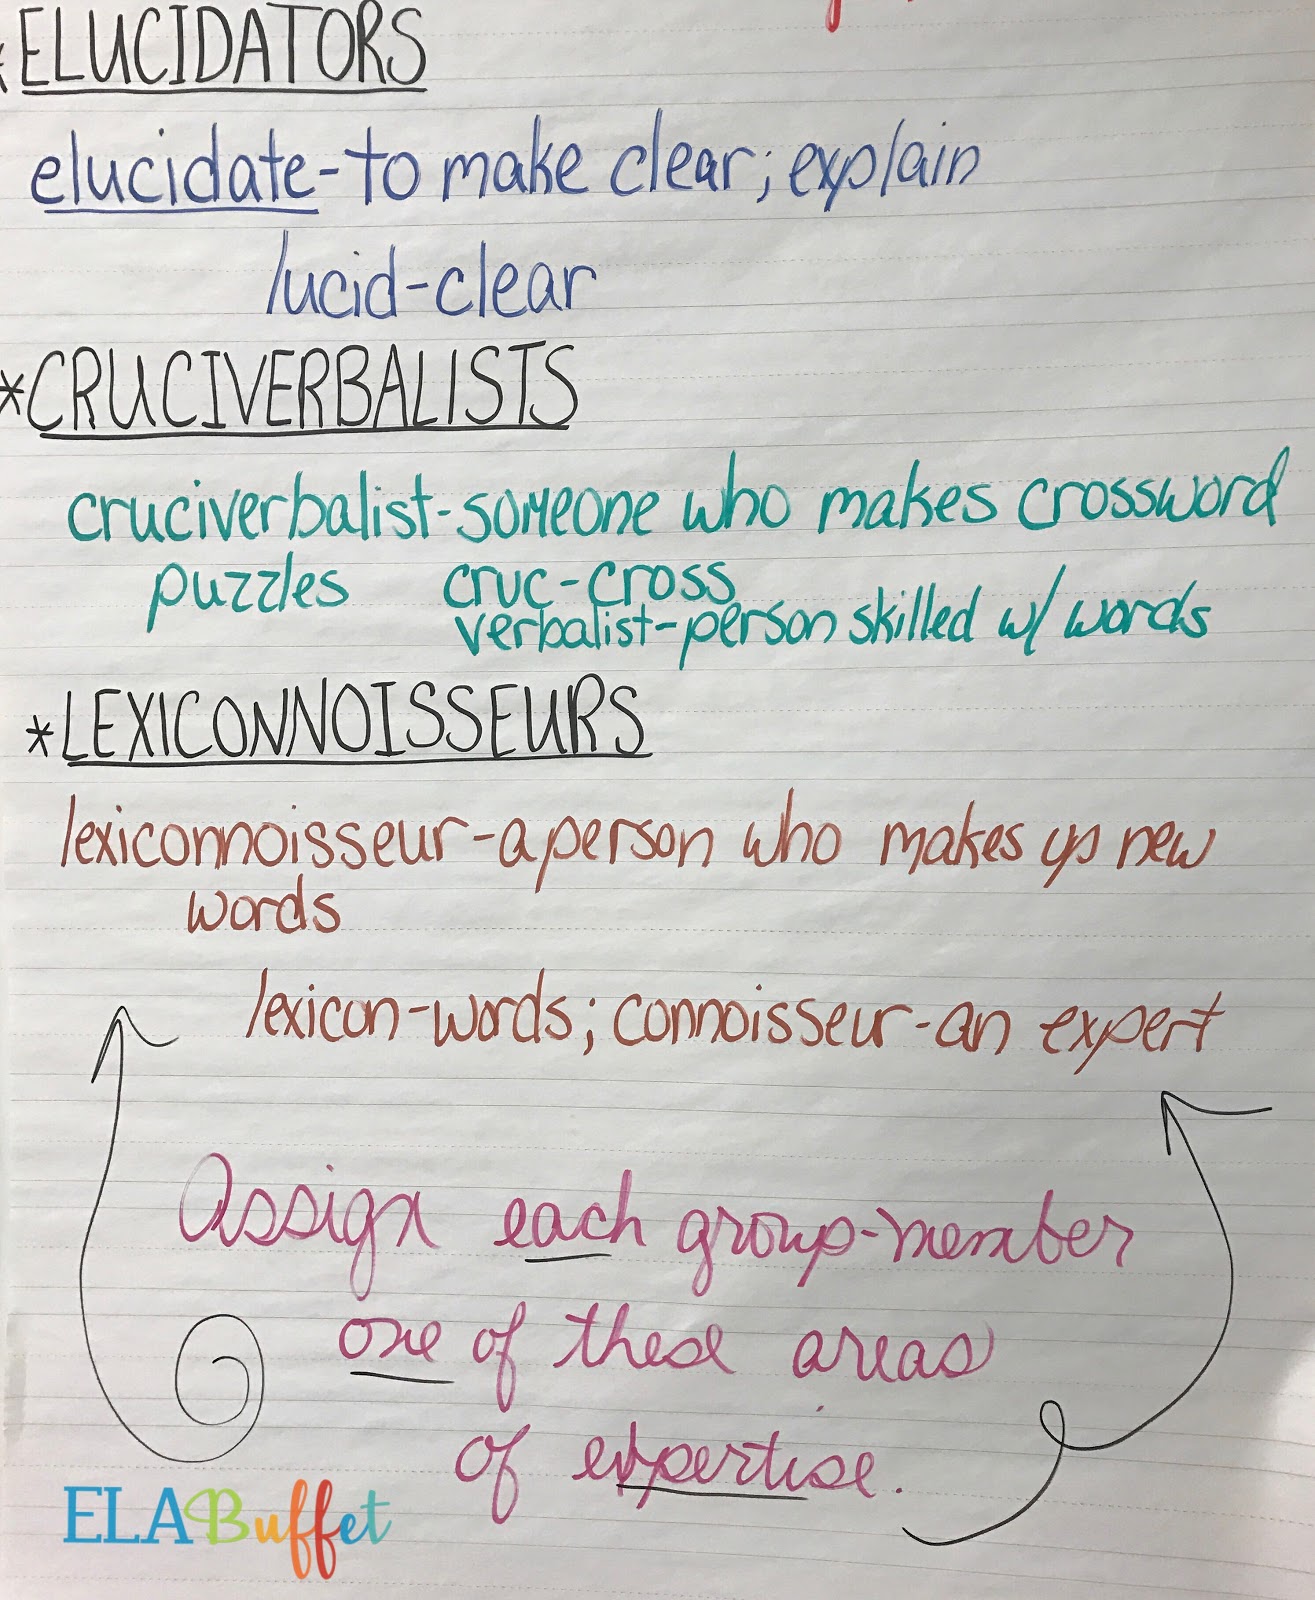 *ELUCIDATORS
elucidate-to make clear; explain
lucid-clear
*CRUCIVERBALISTS
cruciverbalist-someone who makes crossword
puzzles cruc-cross
verbalist-person skilled w/ words
*LEXICONNOISSEURS
lexiconnoisseur-a person who makes up new
words
lexicon-words; connoisseur-an expert
Assign each group-member
one of these areas
of expertise.
ELABuffet